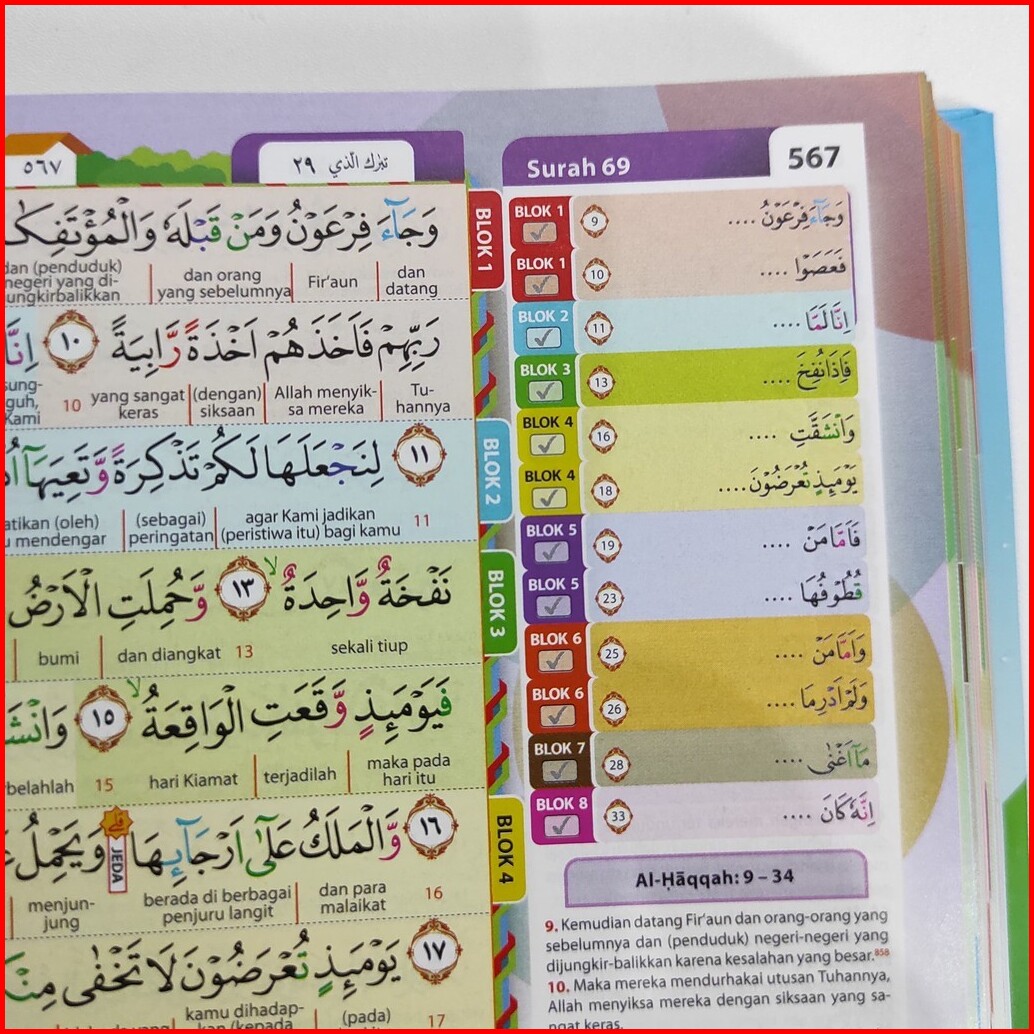 ٥٦٧
تبرك الذي ٢٩
وَجَآءَ فِرْعَوْنُ وَمَنْ قَبْلَهٗ وَالْمُؤْتَفِكٰ
dan datang | Fir'aun | dan orang yang sebelumnya | dan (penduduk) negeri yang di-ungkirbalikkan
رَبِّهِمْ فَاَخَذَهُمْ اَخْذَةً رَّابِيَةً ١٠ اِنَّا
Tu-hannya | Allah menyik-sa mereka | (dengan) siksaan | yang sangat keras 10 sung-guh, Kami
لِنَجْعَلَهَا لَكُمْ تَذْكِرَةً وَّتَعِيَهَآ ١١
11 agar Kami jadikan (peristiwa itu) bagi kamu | (sebagai) peringatan | atikan (oleh) mendengar
نَفْخَةٌ وَّاحِدَةٌ ۙ ١٣ وَّحُمِلَتِ الْاَرْضُ
sekali tiup 13 dan diangkat | bumi
فَيَوْمَىِٕذٍ وَّقَعَتِ الْوَاقِعَةُ ۙ ١٥ وَانْشَ
maka pada hari itu | terjadilah | hari Kiamat 15 belahlah
١٦ وَّالْمَلَكُ عَلٰٓى اَرْجَاۤىِٕهَا ۗ وَيَحْمِلُ
JEDA
16 dan para malaikat | berada di berbagai penjuru langit | menjun-jung
١٧ يَوْمَىِٕذٍ تُعْرَضُوْنَ لَا تَخْفٰى مِنْكُ
17 (pada) | kamu dihadap-kan (kepada
BLOK 1
BLOK 2
BLOK 3
BLOK 4
Surah 69 567
BLOK 1 9 وَجَآءَ فِرْعَوْنُ ....
BLOK 1 10 فَعَصَوْا ....
BLOK 2 11 اِنَّا لَمَّا ....
BLOK 3 13 فَاِذَا نُفِخَ ....
BLOK 4 16 وَانْشَقَّتِ ....
BLOK 4 18 يَوْمَىِٕذٍ تُعْرَضُوْنَ ....
BLOK 5 19 فَاَمَّا مَنْ ....
BLOK 5 23 قُطُوْفُهَا ....
BLOK 6 25 وَاَمَّا مَنْ ....
BLOK 6 26 وَلَمْ اَدْرِ مَا ....
BLOK 7 28 مَآ اَغْنٰى ....
BLOK 8 33 اِنَّهٗ كَانَ ....
Al-Ḥāqqah: 9 – 34
9. Kemudian datang Fir'aun dan orang-orang yang
sebelumnya dan (penduduk) negeri-negeri yang
dijungkir-balikkan karena kesalahan yang besar.⁸⁵⁸
10. Maka mereka mendurhakai utusan Tuhannya,
Allah menyiksa mereka dengan siksaan yang sa-
ngat keras.